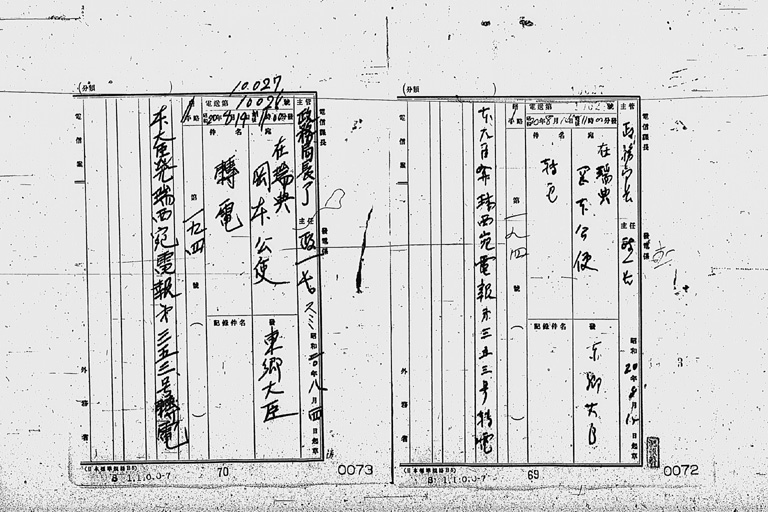 (分類 )
10.027
10026
電送第 號
主管 政務局長了
主任 政一長
昭和二〇年八月一四日起草
在瑞典
岡本公使
宛
發
東郷大臣
件名
轉電
記錄件名
第一九四號
( )
本大臣発瑞西宛電報第三五三号轉電
電信課長
發電係
電信案
外務省
(日本標準規格B5)
B 1.1.0.0-7
70
0073
(分類 )
電送第 號
主管 政務局長
主任 政一長
昭和20年8月
日起草
在瑞典
岡本公使
宛
發
東郷大臣
件名
轉電
記錄件名
第一九四號
( )
本大臣発瑞西宛電報第三五三号轉電
電信課長
發電係
電信案
外務省
(日本標準規格B5)
B 1.1.0.0-7
69
0072